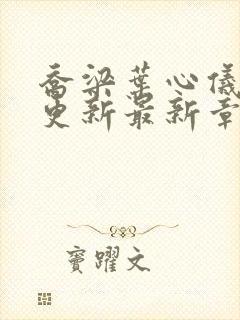 乔梁葉心儀
更新最新章
竇躍文